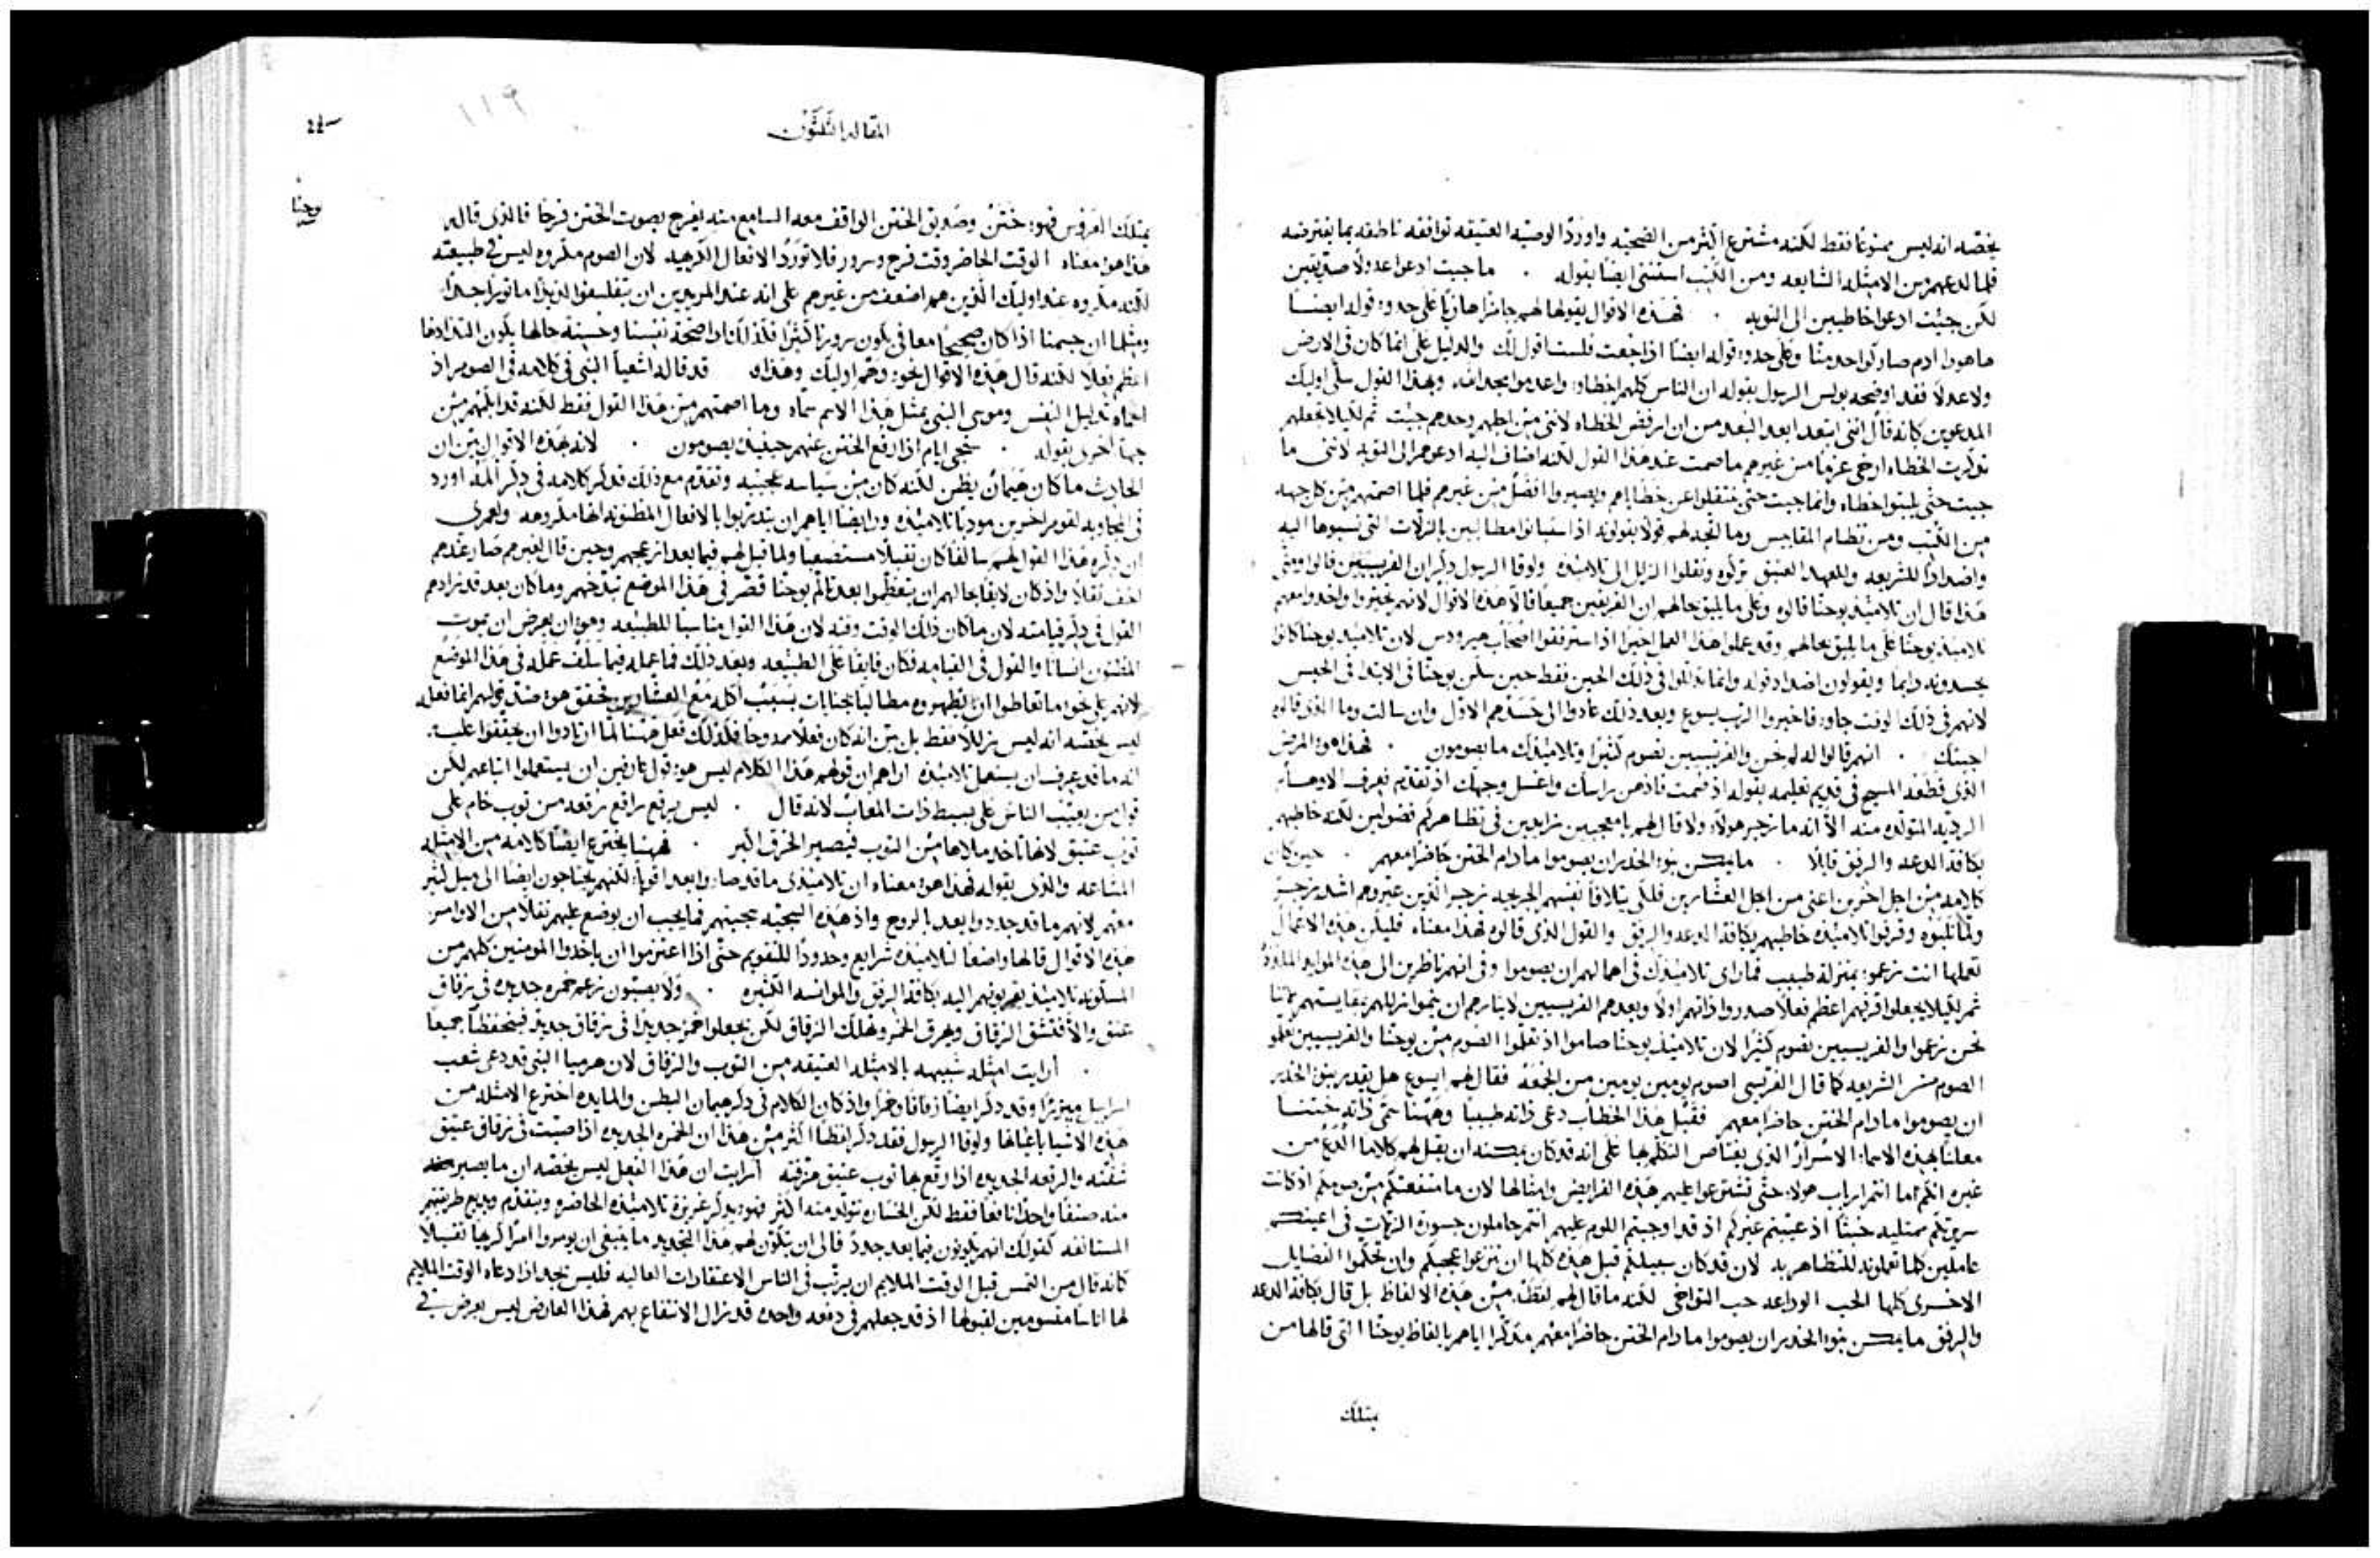 يخصه انه ليس ممنوعًا فقط لكنه مشترع اكثر من الضحيه واورد الوصيه العتيقه توافقه ناطقه بما يفترضه
فلما لدعهم من الامثله الشايعه ومن الكتب استثنى ايضًا بقوله . ما جيت ادعوا عدولًا صديقين
لكن جيت ادعوا خاطيين الى التوبه . فهذه الاقوال يقولها لهم على حدو قوله ايضًا
ما هوذا ادم صار كواحد منا وعلى حدو قوله ايضًا اذا جعت فلست اقول لك والدليل على انما كان فى الارض
ولا عدلًا فقد اوضحه بولس الرسول بقوله ان الناس كلهم اخطاوا واعدموا مجد الله وبهذا القول سلى اوليك
المدعوين كانه قال اننى ابتعد ابعد البعد من ان ارفض الخطاه لاننى من اجلهم وحدهم جيت ثم لكيلا يجعلهم
عزمًا من غيرهم ما صمت عند هذا القول لكنه اضاف اليه ادعوهم الى التوبه لاننى ما
جيت حتى يلبثوا خطاه وانما جيت حتى ينتقلوا عن خطاياهم ويصيروا افضل من غيرهم فلما اصمتهم من كل جهه
من الكتب ومن نظام المقاييس وما اتجه لهم قولًا يقولونه اذ استبانوا مطالبين بالزلات التى نسبوها اليه
واضدادًا للشريعه وللعهد العتيق تركوه ونقلوا الزلل الى تلاميذه ولوقا الرسول ذكر ان الفريسيين قالوا ومتى
هذا قال ان تلاميذ يوحنا قالوه وعلى ما يليق بحالهم ان الفريقين جميعًا قالا هذه الاقوال
تلاميذ يوحنا على ما يليق بحالهم وقد عملوا هذا العمل اخيرًا اذ استرفقوا اصحاب هيرودس لان تلاميذ يوحنا كانوا
يحسدونه دايمًا ويقولون اضداد قوله وانما تذللوا فى ذلك الحين فقط حين سكن يوحنا فى الابتدا فى الحبس
لانهم فى ذلك الوقت جاوا فاخبروا الرب يسوع وبعد ذلك عادوا الى حسدهم الاول وان سالت وما الذى قالوه
اجبتك . انهم قالوا له لم نحن والفريسيين نصوم كثيرًا وتلاميذك ما يصومون . فهذا هو المرض
الذى قطعه المسيح فى قديم تعليمه بقوله اذ صمت فادهن راسك واغسل وجهك اذ تقدم فعرف الاوصاب
الرديه المتولده منه الا انه ما زجر هولاء ولا قال لهم يا معجبين زايدين فى تظاهركم فضولين لكنه خاطبهم
بكافة الدعه والرفق قايلًا . ما يمكن بنوا الخدر ان يصوموا ما دام الختن حاضرًا معهم . حين كان
كلامه من اجل اخرين اعنى من اجل العشارين فلكى يتلافا نفسهم الجريحه زجر الذين عيروهم اشد زجر
ولما ثلبوه وقرفوا تلاميذه خاطبهم بكافة الدعه والرفق والقول الذى قالوه فهذا معناه فليكن هذه الاعمال
تعملها انت بمنزلة طبيب فما راى تلاميذك فى اهمالهم ان يصوموا وفى انهم ناظرين الى هذه الموايد
ثم لكيلا يجعلوا قرفهم اعظم فعلًا صدروا ذاتهم اولًا وبعدهم الفريسيين
نحن والفريسيين نصوم كثيرًا لان تلاميذ يوحنا صاموا اذ تعلموا الصوم من يوحنا والفريسيين تعلموا
الصوم من الشريعه كما قال الفريسى اصوم يومين يومين من الجمعه فقال لهم ايسوع هل يقدر بنوا الخدر
ان يصوموا ما دام الختن حاضرًا معهم فقبل هذا الخطاب دعى ذاته طبيبًا وههنا سمى ذاته ختنًا
معلنًا بهذه الاسماء الاسرار الذى يعتاص التكلم بها على انه قد كان يمكنه ان يقبل لهم كلامًا الدغ من
غيره انكم اما انتم ارباب هولاء حتى تشترعوا عليهم هذه الفرايض وامثالها لان ما منفعتكم من صومكم اذ كانت
سريرتكم ممتليه خبثًا اذ عبتم غيركم اذ قد اوجبتم اللوم عليهم انتم حاملون جسورة الزلات فى اعينكم
عاملين كلما تعملونه للتظاهر به لان قد كان سبيلكم قبل هذه كلها ان تنزعوا عجبكم وان تحكموا الفضايل
الاخرى كلها الحب الوداعه حب التواخى لكنه ما قال لهم لفظه من هذه الالفاظ بل قال بكافة الدعه
والرفق ما يمكن بنوا الخدر ان يصوموا ما دام الختن حاضرًا معهم مذكرًا اياهم بالفاظ يوحنا التى قالها من
يمتلك
المقاله الثلثون
١١٩
يوحنا
يمتلك العروس فهو ختن وصديق الختن الواقف معه السامع منه يفرح بصوت الختن فرحًا فالذى قاله
هذا هو معناه الوقت الحاضر وقت فرح وسرور فلا تورد الافعال الكريهه لان الصوم مكروه ليس فى طبيعته
لكنه مكروه عند اوليك الذين هم اضعف من غيرهم على انه عند المريدين ان يتفلسفوا لذيذًا ماثورًا جدًا
ومثلما ان جسمنا اذا كان صحيحًا معافى يكون سرورنا كثيرًا فكذلك اذا صحة نفسنا وحسنة حالها يكون التذاذها
اعظم فعلًا لكنه قال هذه الاقوال نحو وهم اوليك وهذاه قد قاله اشعيا النبى فى كلامه فى الصوم اذ
اسماه تذليل النفس وموسى النبى بمثل هذا الاسم سماه وما اصمتهم من هذا القول فقط لكنه قد الجمهم من
جهة اخرى بقوله . ستجى ايام اذا رفع الختن عنهم حينيذ يصومون . لانه بهذه الاقوال بين ان
الحادث ما كان حيمان بطن لكنه كان من سياسه عجيبه وتقدم مع ذلك فذكر كلامه فى ذكر المه اورد
فى المجاوبه لقوم اخرين مودبًا تلاميذه ورايضًا اياهم ان يتدربوا بالافعال المظنونه انها مكروهه ولعمرى
ان ذكره هذا القول لهم سالفًا كان ثقيلًا مستصعبًا ولما قبل لهم فيما بعد ازعجهم وحين قال لغيرهم صار عندهم
اخف ثقلًا واذ كان لايقًا بحالهم ان يتعظموا بعد تالم يوحنا قصر فى هذا الموضع تبذخهم وما كان بعد قد زادهم
القول فى ذكر قيامته لان ما كان ذلك الوقت وقته لان هذا القول مناسبًا للطبيعه وهو ان يعرض ان يموت
المظنون انسانًا والقول فى القيامه فكان فايقًا على الطبيعه وبعد ذلك فما عمله فيما سلف عمله فى هذا الموضع
لانهم على نحو ما تعاطوا ان يظهروه مطالبًا بجنايات بسبب اكله مع العشارين فحقق هو ضد قولهم انما فعله
ليس يخصه انه ليس زللًا فقط بل بين انه كان فعلًا ممدوحًا فلذلك فعل ههنا لما ارادوا ان يحققوا عليه
انه ما قد عرف ان يستعمل تلاميذه اراهم ان قولهم هذا الكلام ليس هو قول عارفين ان يستعملوا اتباعهم لكن
قول من يعيب الناس على بسيط ذات المعاب لانه قال . ليس يرقع راقع رقعه من ثوب خام على
ثوب عتيق لانها تاخذ ملاها من الثوب فيصير الخرق اكبر . فههنا يخترع ايضًا كلامه من الامثله
المشاعه والذى بقوله فهذا هو معناه ان تلاميذى ما قد صاروا بعد اقوياء لكنهم يحتاجون ايضًا الى ميل كثير
معهم لانهم ما قد جددوا بعد بالروح واذ هذه السجيه سجيتهم فما يجب ان يوضع عليهم ثقلًا من الاوامر
هذه الاقوال قالها واضعًا لتلاميذه شرايع وحدودًا للتقويم حتى اذا اعتزموا ان ياخذوا المومنين كلهم من
المسكونه تلاميذ يقربونهم اليه بكافة الرفق والموانسه الكثيره . ولا يصبون خمره جديده فى زقاق
عتق والا فتنشق الزقاق ويهرق الخمر وتهلك الزقاق لكن يجعلوا خمرًا جديدًا فى زقاق جديد فينحفظا جميعًا
. ارايت امثله شبيهه بالامثله العتيقه من الثوب والزقاق لان هرميا النبى قد دعى شعب
اسراييل ميزرًا وقد ذكر ايضًا زقاقًا وخمرًا واذ كان الكلام فى ذكر حيمان البطن والمايده اخترع الامثله من
هذه الاشيا باعيانها ولوقا الرسول فقد ذكر لفظًا اكثر من هذا ان الخمره الجديده اذا صبت فى زقاق عتيق
شقته والرقعه الجديده اذا وقع بها ثوب عتيق مزقته ارايت ان هذا الفعل ليس يخصه ان ما يصير
منه صنفًا واحدًا نافعًا فقط لكن الخساره تتولد منه اكثر فهو يذكر غريزة تلاميذه الحاضره ويتقدم ويذيع طريقتهم
المستانفه كقولك انهم يكونون فيما بعد جددًا فالى ان يتكون لهم هذا التجديد ما ينبغى ان يومروا امرًا كريهًا ثقيلًا
كانه قال من التمس قبل الوقت الملايم ان يرتب فى الناس الاعتقادات العاليه فليس يجد اذا دعاه الوقت الملايم
لها اناسًا مقسومين لقبولها اذ قد جعلهم فى دفعه واحده قد زال الانتفاع بهم فهذا العارض ليس يعرض فى